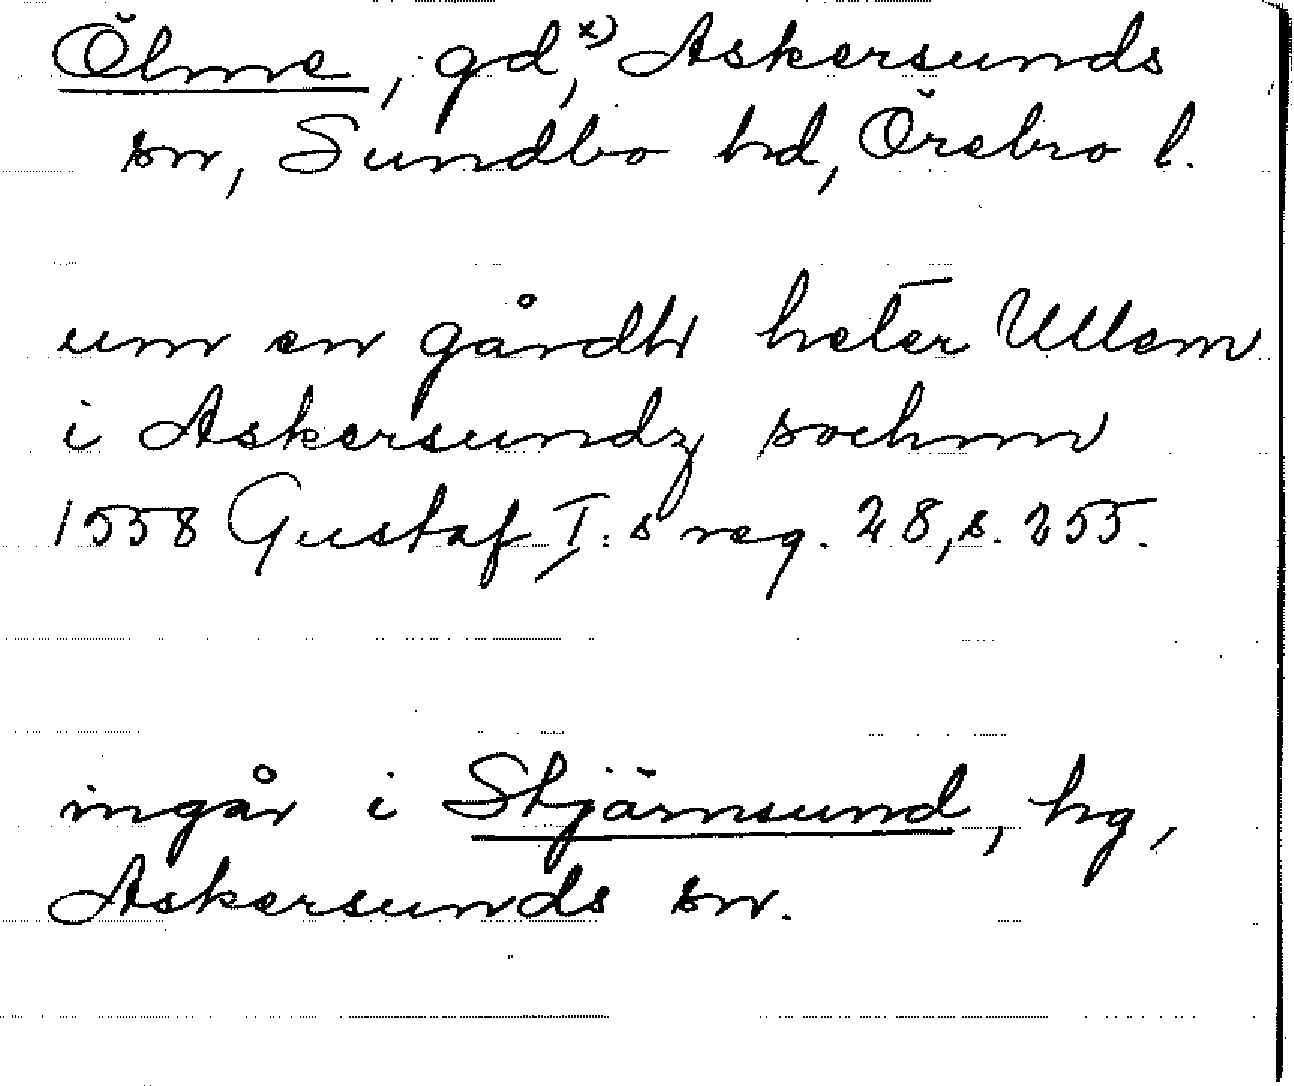 Ölme, gd,ˣ⁾ Askersunds
sn, Sundbo hd, Örebro l.
um en gårdh heter Ullem
i Askersundz sochnn
1558 Gustaf I:s reg. 28, s. 255.
ingår i Stjärnsund, hg,
Askersunds sn.